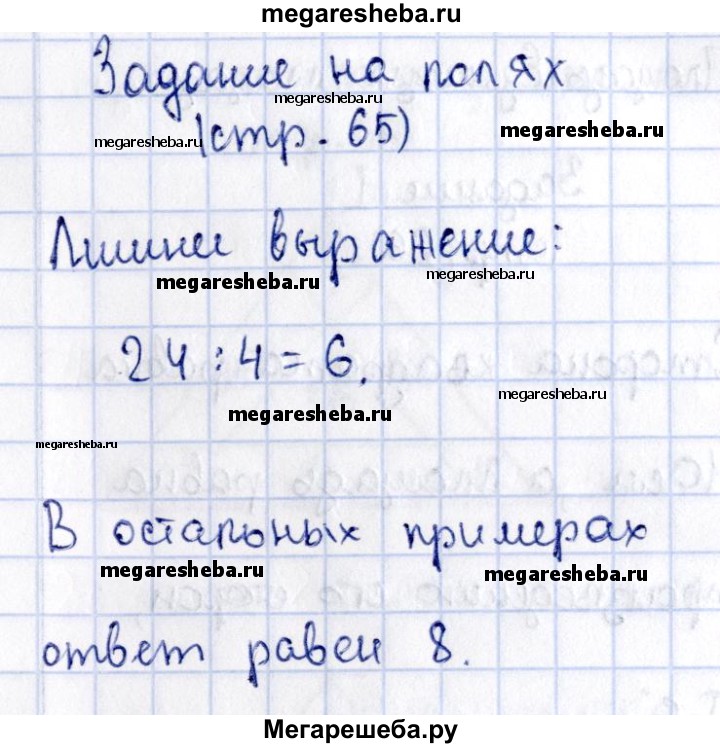 megaresheba.ru
Задание на полях
megaresheba.ru
(стр. 65)
megaresheba.ru
megaresheba.ru
Лишнее выражение:
megaresheba.ru
megaresheba.ru
24 : 4 = 6.
megaresheba.ru
megaresheba.ru
megaresheba.ru
В остальных примерах
megaresheba.ru
megaresheba.ru
ответ равен 8.
Мегарешеба.ру